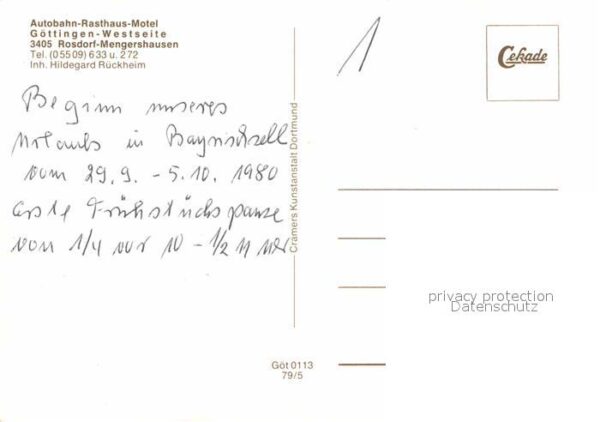 Autobahn-Rasthaus-Motel
Göttingen-Westseite
3405 Rosdorf-Mengershausen
Tel. (05509) 633 u. 272
Inh. Hildegard Rückheim
Beginn unseres
Urlaubs in Bayrischzell
vom 29.9. - 5.10. 1980
erste Frühstückspause
von 1/4 vor 10 - 1/2 11 Uhr
Cramers Kunstanstalt Dortmund
1
Cekade
privacy protection
Datenschutz
Göt 0113
79/5